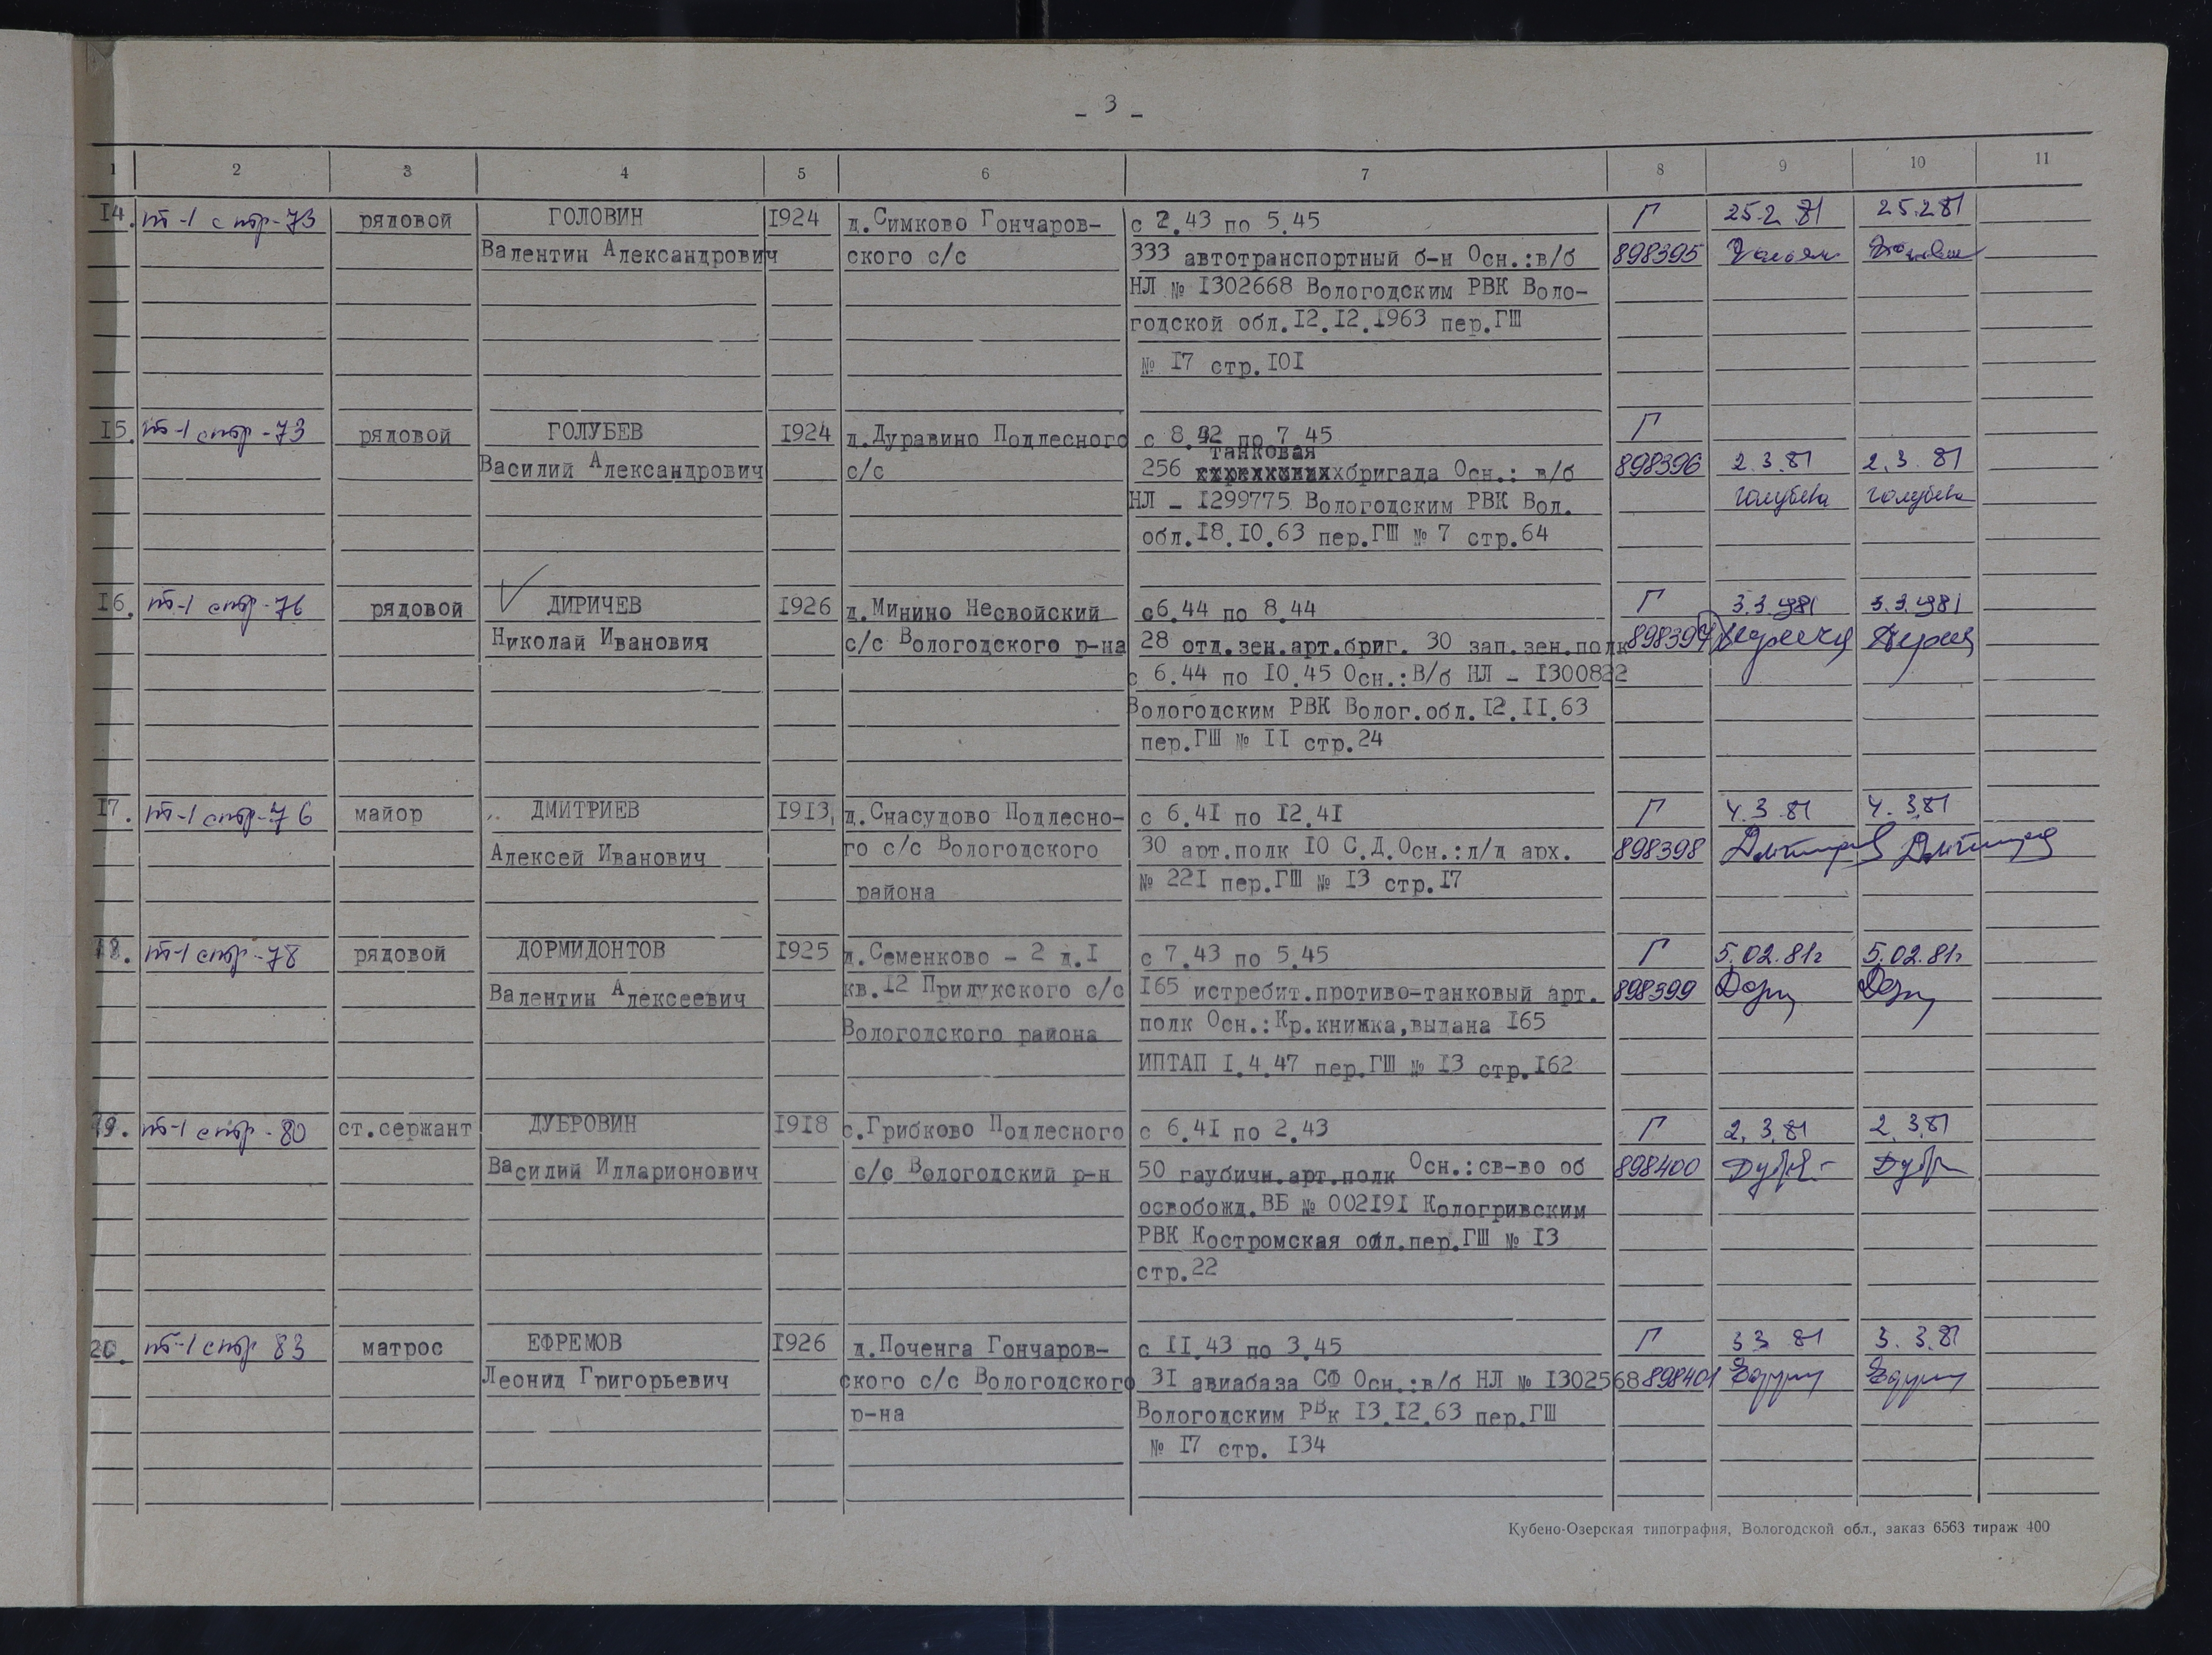 - 3 -
1 2 3 4 5 6 7 8 9 10 11
14. т-1 стр-73 рядовой ГОЛОВИН 1924 д.Симково Гончаров- с 2.43 по 5.45 Г 25.2.81 25.2.81
Валентин Александрович ского с/с 333 автотранспортный б-н Осн.:в/б 898395
НЛ № 1302668 Вологодским РВК Воло-
годской обл.12.12.1963 пер.ГШ
№ 17 стр.101
15. т-1 стр-73 рядовой ГОЛУБЕВ 1924 д.Дуравино Подлесного с 8.42 по 7.45 Г
танковая
Василий Александрович с/с 256 бригада Осн.: в/б 898396 2.3.81 2.3.81
НЛ - 1299775 Вологодским РВК Вол. Голубев Голубев
обл.18.10.63 пер.ГШ № 7 стр.64
16. т-1 стр-76 рядовой ДИРИЧЕВ 1926 д.Минино Несвойский с6.44 по 8.44 Г 3.3.1981 3.3.1981
Николай Иванович с/с Вологодского р-на 28 отд.зен.арт.бриг. 30 зап.зен.полк 898397
с 6.44 по 10.45 Осн.:В/б НЛ - 1300822
Вологодским РВК Волог.обл.12.11.63
пер.ГШ № 11 стр.24
17. т-1 стр-76 майор ДМИТРИЕВ 1913 д.Снасудово Подлесно- с 6.41 по 12.41 Г 4.3.81 4.3.81
Алексей Иванович го с/с Вологодского 30 арт.полк 10 С.Д.Осн.:л/д арх. 898398 Дмитриев Дмитриев
района № 221 пер.ГШ № 13 стр.17
18. т-1 стр-78 рядовой ДОРМИДОНТОВ 1925 д.Семенково - 2 д.1 с 7.43 по 5.45 Г 5.02.81г 5.02.81г
Валентин Алексеевич кв.12 Прилукского с/с 165 истребит.противо-танковый арт. 898399
Вологодского района полк Осн.:Кр.книжка,выдана 165
ИПТАП 1.4.47 пер.ГШ № 13 стр.162
19. т-1 стр-80 ст.сержант ДУБРОВИН 1918 с.Грибково Подлесного с 6.41 по 2.43 Г 2.3.81 2.3.81
Василий Илларионович с/с Вологодский р-н 50 гаубичн.арт.полк Осн.:св-во об 898400
освобожд.ВБ № 002191 Кологривским
РВК Костромская обл.пер.ГШ № 13
стр.22
20. т-1 стр 83 матрос ЕФРЕМОВ 1926 д.Поченга Гончаров- с 11.43 по 3.45 Г 3 3 81 3.3.81
Леонид Григорьевич ского с/с Вологодского 31 авиабаза СФ Осн.:в/б НЛ № 1302568 898401
р-на Вологодским РВк 13.12.63 пер.ГШ
№ 17 стр. 134
Кубено-Озерская типография, Вологодской обл., заказ 6563 тираж 400